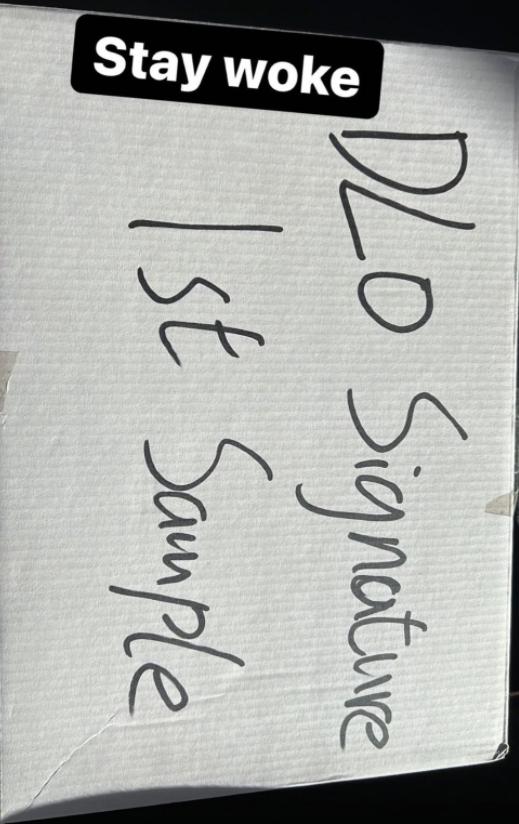 Stay woke
DLO Signature
1st Sample